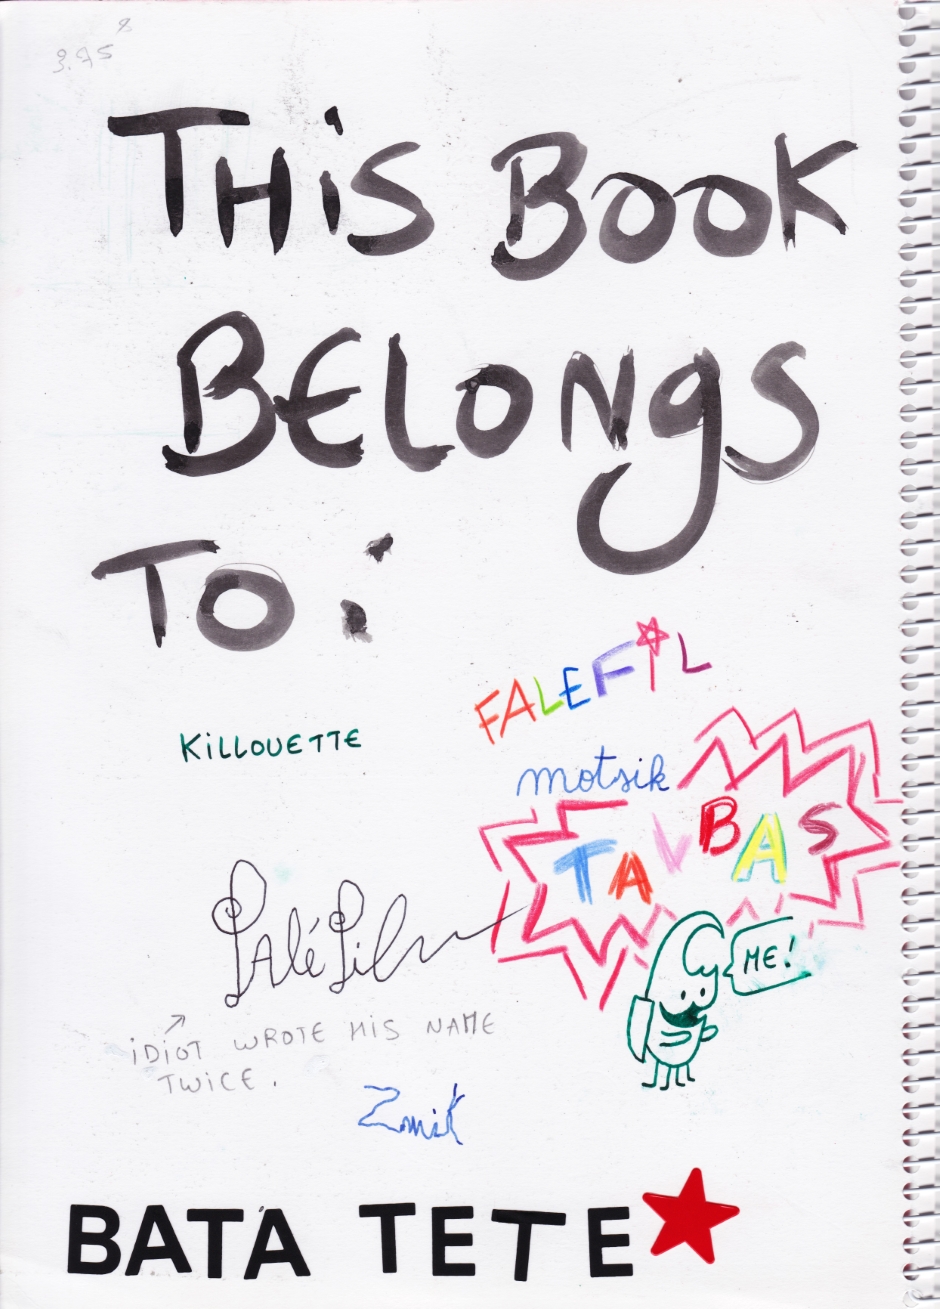 THiS BOOK
BELONgS
TO:
FALEFiL
KiLLOUETTE
motsik
TAVBAS
ME!
iDiOT WROTE HIS NAME
TWICE.
Zmik
BATA TETE